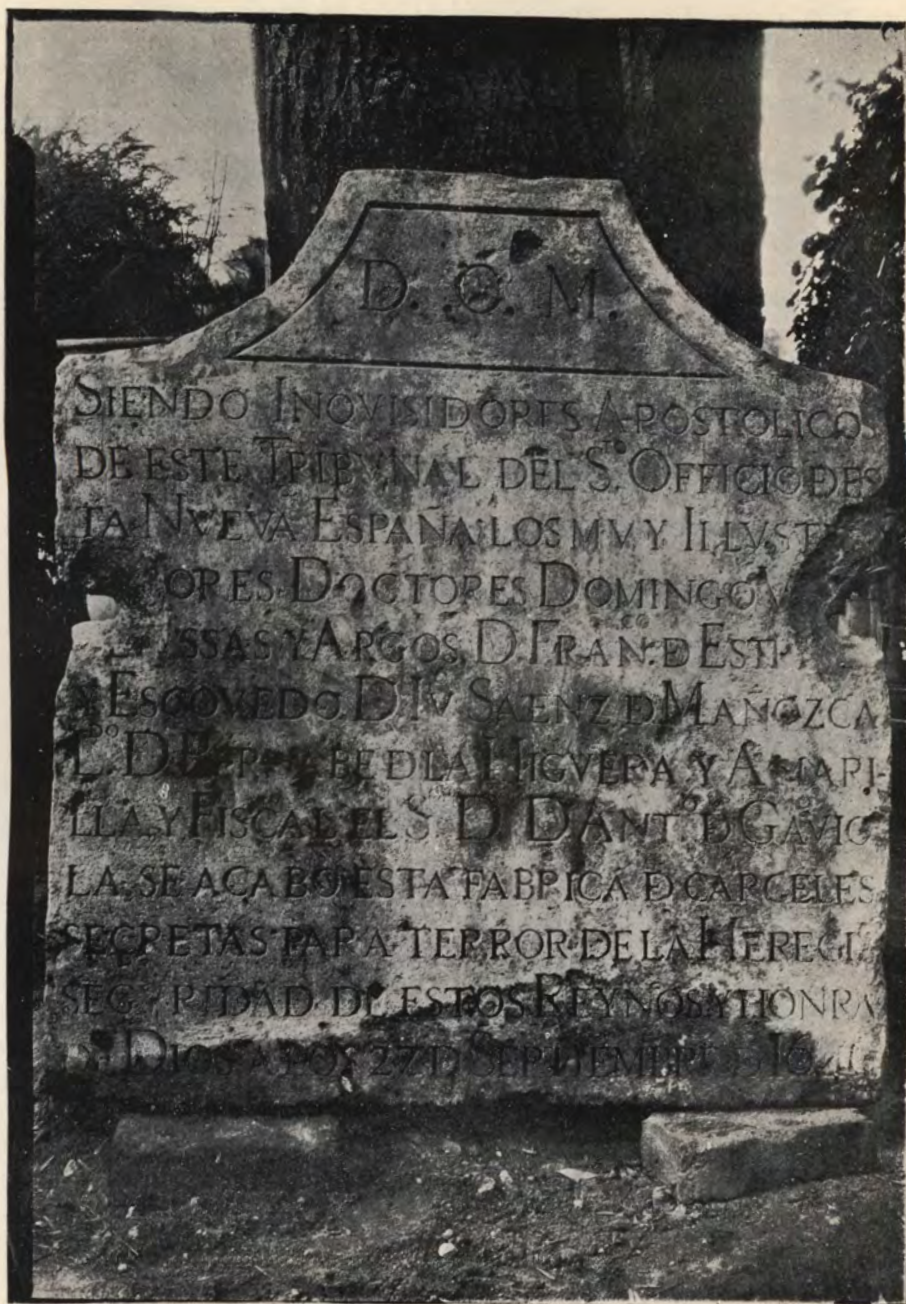 D. O. M.
SIENDO INQVISIDORES APOSTOLICO
DE ESTE TRIBVNAL DEL S.º OFFICIO DES
TA NVEVA ESPAÑA: LOS MVY
DOCTORES DOMINGO
Y ARGOS, D. FRAN.ᶜᴼ D
Y ESCOVEDO. D. IV SAENZ D MAÑOZCA
L.ᴰᴼ D DLA HIGVERA Y AMARI-
LLA, Y FISCAL EL S. D. D ANT.º D GAVIO
LA, SE ACABO ESTA FABRICA D CARCELES
SECRETAS PARA TERROR DE LA HEREGIA
SEGVRIDAD DE ESTOS REYNOS Y HONRA
DIOS A POS 27 D SEPTIEMBRE